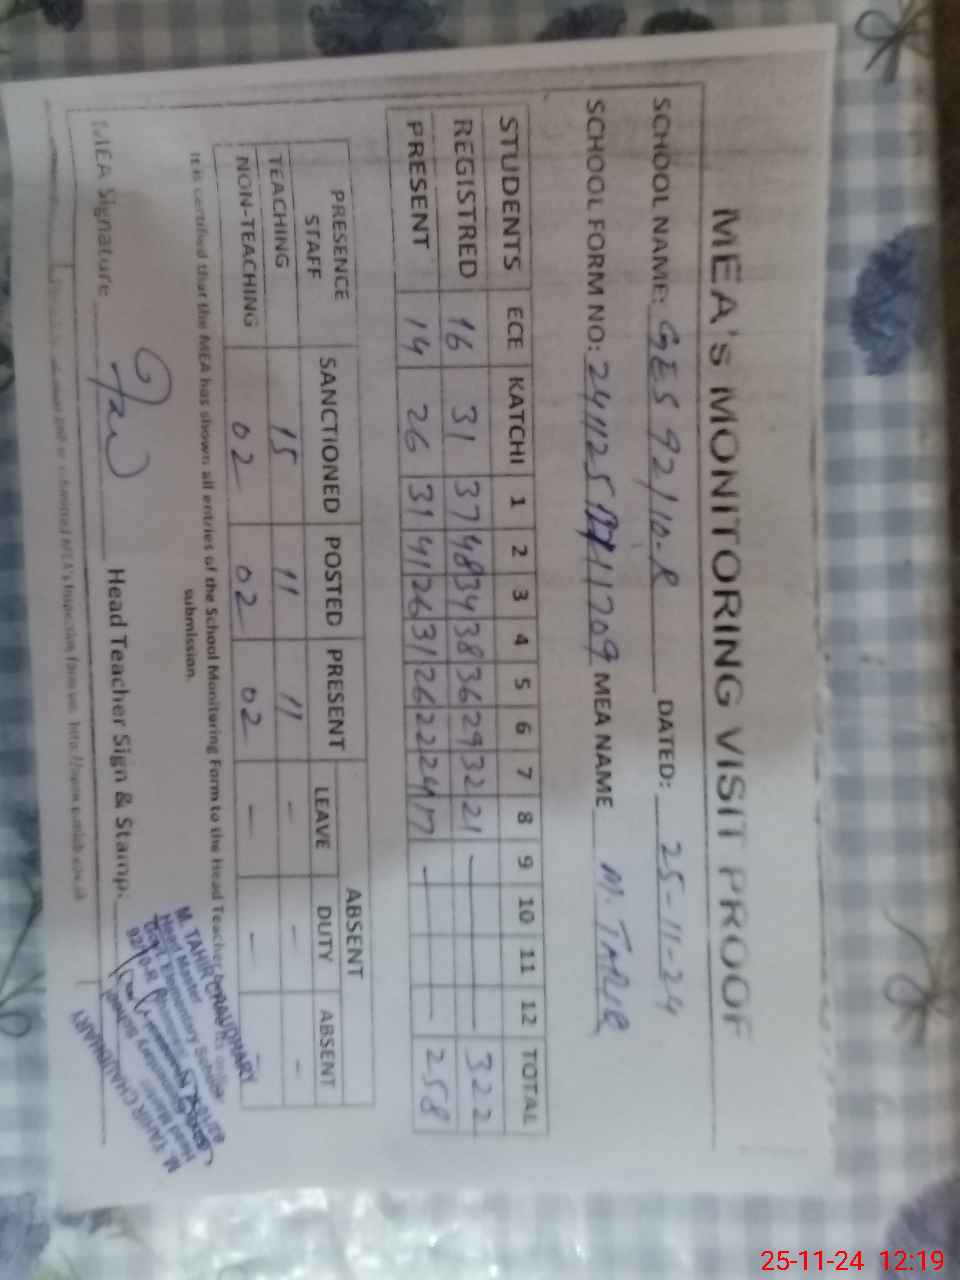 MEA's MONITORING VISIT PROOF
SCHOOL NAME: GES 92/10-R DATED: 25-11-24
SCHOOL FORM NO: MEA NAME M. TARIQ
STUDENTS ECE KATCHI 1 2 3 4 5 6 7 8 9 10 11 12 TOTAL
REGISTRED 16 31 37 48 34 38 36 29 32 21 — — 322
PRESENT 14 26 31 41 26 31 26 22 24 17 — — 258
PRESENCE STAFF SANCTIONED POSTED PRESENT ABSENT
LEAVE DUTY ABSENT
TEACHING 15 11 11 - - -
NON-TEACHING 02 02 02 - - -
It is certified that the MEA has shown all entries of the School Monitoring Form to the Head Teacher
submission.
MEA Signature Head Teacher Sign & Stamp:
M. TAHIR CHAUDHARY
Head Master
Govt. Elementary School
92/10-R
M. TAHIR CHAUDHARY
Head Master
25-11-24 12:19